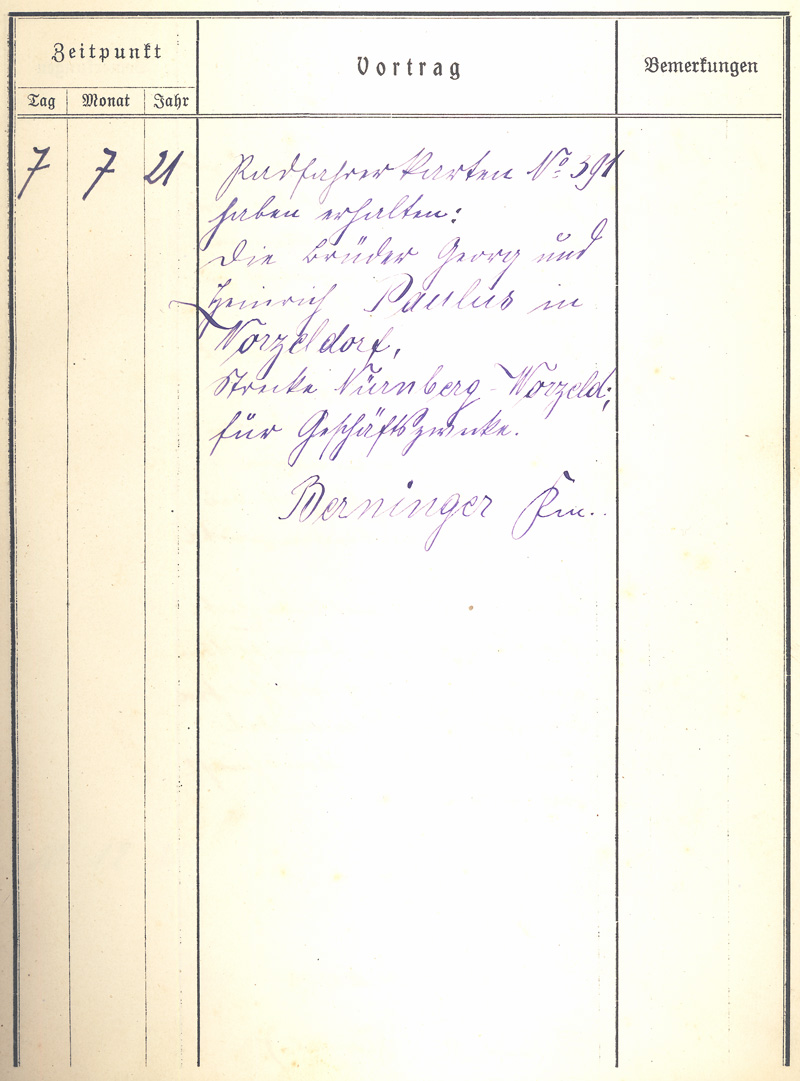 Zeitpunkt
Vortrag
Bemerkungen
Tag Monat Jahr
7 7 21 Radfahrerkarten No 391
haben erhalten:
Die Brüder Georg und
Heinrich Paulus in
Worzeldorf,
Strecke Nürnberg-Worzeld;
für Geschäftszwecke.
Berninger